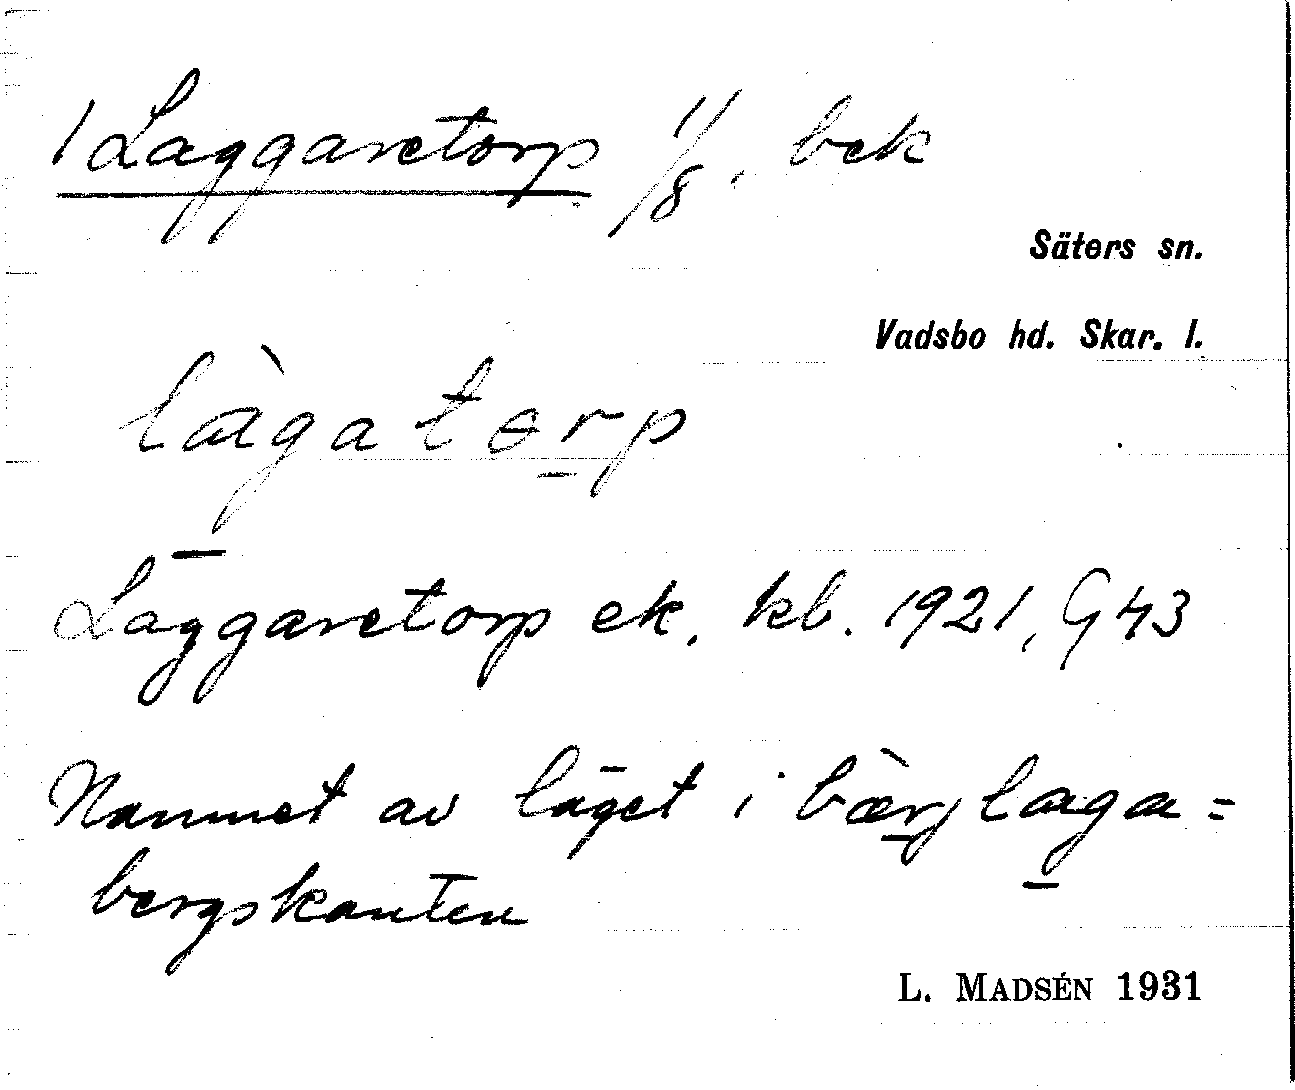 1 Laggaretorp 1/8. bek
Säters sn.
Vadsbo hd. Skar. l.
làgatɵrp
Laggaretorp ek. kb. 1921, G 43
Namnet av läget i bær̀jlaga=
bergskanten
L. MADSÉN 1931